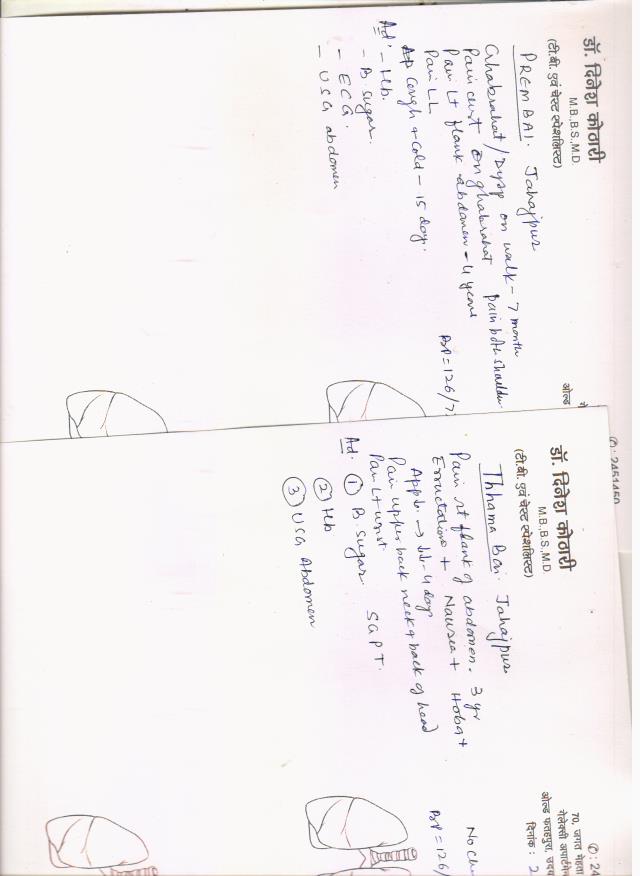 डॉ. दिनेश कोठारी
M.B.,B.S.,M.D.
(टी.बी. एवं चेस्ट स्पेशलिस्ट)
ओल्ड
PREMBAI. Jahajpur
Ghabrahat/Dysp on walk - 7 month
Pain chest on ghabrahat pain both shoulder
Pain Lt flank abdomen - 4 years
Pain LL
BP = 126/7
Cough + cold - 15 day.
Ad' - Hb.
- B. sugar
- ECG.
- USG abdomen
✆: 2451450
डॉ. दिनेश कोठारी
M.B.,B.S.,M.D
(टी.बी. एवं चेस्ट स्पेशलिस्ट)
✆: 24
70, जगत मेहता
गेलेक्सी अपार्टमे
ओल्ड फतहपुरा, उदय
दिनांक : 2
Thhama Bai. Jahajpur
Pain rt flank of abdomen. 3 yr
Erructations + Nausea +
No
BP = 126/
4 day
Pain upper back neck & back of head
Pain Lt wrist.
Ad. ① B. Sugar SGPT.
② Hb
③ USG Abdomen